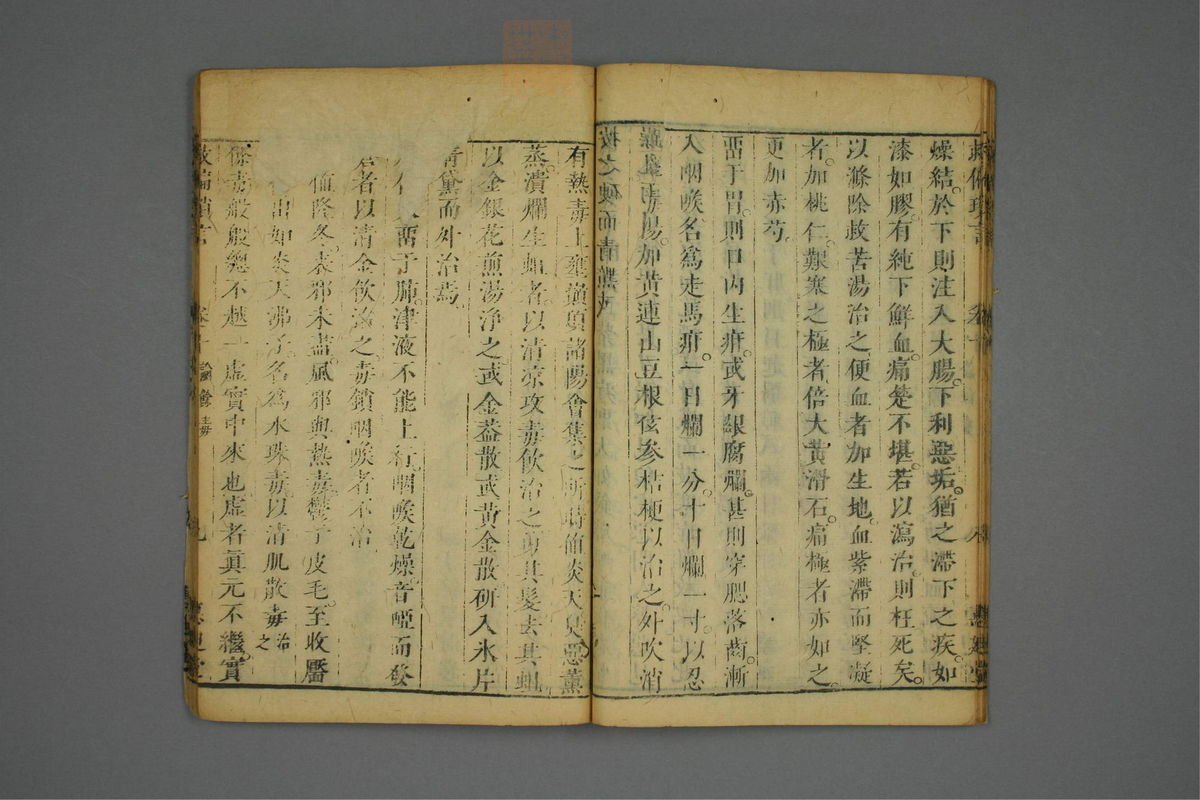 燥結於下則注入大腸下利惡垢猶之滯下之疾如
漆如膠有純下鮮血痛楚不堪若以瀉治則枉死矣
以滌除救苦湯治之便血者加生地血紫滯而堅凝
者加桃仁艱寒之極者倍大黃滑石痛極者亦如之
更加赤芍
畱于胃則口內生疳或牙齦腐爛甚則穿腮落齒漸
入咽喉名爲走馬疳一日爛一分十日爛一寸以忍
冬解毒湯加黃連山豆根玄參桔梗以治之外吹消
有熱毒上壅巔頂諸陽會集之所時値炎天臭惡薰
蒸潰爛生蛆者以清凉攻毒飲治之剪其髮去其蛆
以金銀花煎湯淨之或金益散或黃金散研入氷片
青黛而外治焉
畱于肺津液不能上行咽喉乾燥音啞而發
者以清金飲治之毒鎖咽喉者不治
値隆冬表邪未盡風邪與熱毒鬱于皮毛至收靨
出如炎天沸子名爲水珠毒以清肌散毒治之
餘毒般般總不越一虛實中來也虛者眞元不繼實
救偏瑣言 卷十 論餘毒 九 惠迪堂